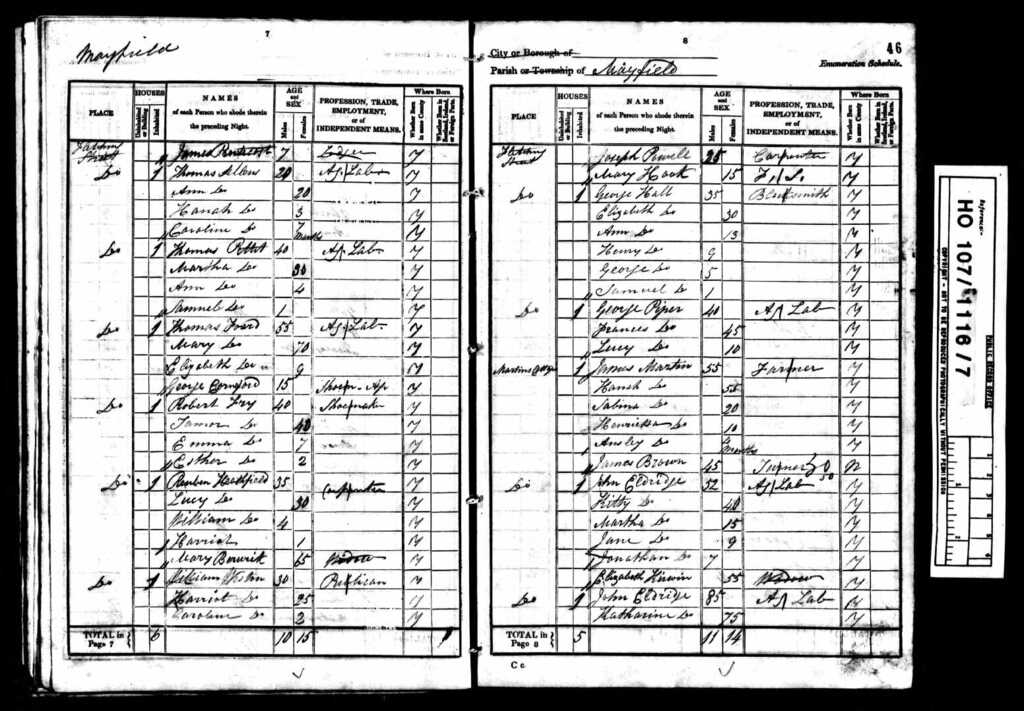 7
Mayfield
PLACE HOUSES Uninhabited or Building Inhabited NAMES of each Person who abode therein the preceding Night. AGE and SEX Males Females PROFESSION, TRADE, EMPLOYMENT, or of INDEPENDENT MEANS. Where Born Whether Born in same County Whether Born in Scotland, Ireland, or Foreign Parts.
Street James 7 y
Do 1 Thomas Allen 20 Ag Lab y
Ann Do 20 y
Hanah Do 3 y
Caroline Do 7 months y
Do 1 Thomas 40 Ag Lab y
Martha Do 30 y
Ann Do 4 y
Samuel Do 1 y
Do 1 Thomas 55 Ag Lab y
Mary Do 70 y
Elizabeth Do 9 y
George Cornford 15 Shoem Ap y
Do 1 Robert Fry 40 Shoemaker y
Do 40 y
Emma Do 7 y
Esther Do 2 y
Do 1 Reuben Heathfield 35 Carpenter y
Lucy Do 30 y
William Do 4 y
Harriet 1 y
Mary Berwick 65 Widow y
Do 1 William 30 Publican y
Harriet Do 25 y
Caroline Do 2 y
TOTAL in Page 7 6 10 15 1
8
46
City or Borough of
Enumeration Schedule.
Parish or Township of Mayfield
PLACE HOUSES Uninhabited or Building Inhabited NAMES of each Person who abode therein the preceding Night. AGE and SEX Males Females PROFESSION, TRADE, EMPLOYMENT, or of INDEPENDENT MEANS. Where Born Whether Born in same County Whether Born in Scotland, Ireland, or Foreign Parts.
Street Joseph Powell 25 Carpenter y
Mary Hook 15 F.S. y
Do 1 George Hall 35 Blacksmith y
Elizabeth Do 30 y
Ann Do 13 y
Henry Do 9 y
George Do 5 y
Samuel Do 1 y
Do 1 George Piper 40 Ag Lab y
Frances Do 45 y
Lucy Do 10 y
Martins 1 James Martin 55 Farmer y
Hanah Do 55 y
Sabina Do 20 y
Henrietta Do 10 y
Ansley Do months y
James Brown 45 n
Do 1 John Eldridge 52 Ag Lab y
Kitty Do 40 y
Martha Do 15 y
Jane Do 9 y
Jonathan Do 7 y
Elizabeth 55 Widow y
Do 1 John Eldridge 85 Ag Lab y
Katharine Do 75 y
TOTAL in Page 8 5 11 14
C c
Reference:-
HO 107/1116/7
PUBLIC RECORD OFFICE
COPYRIGHT - NOT TO BE REPRODUCED PHOTOGRAPHICALLY WITHOUT PERMISSION